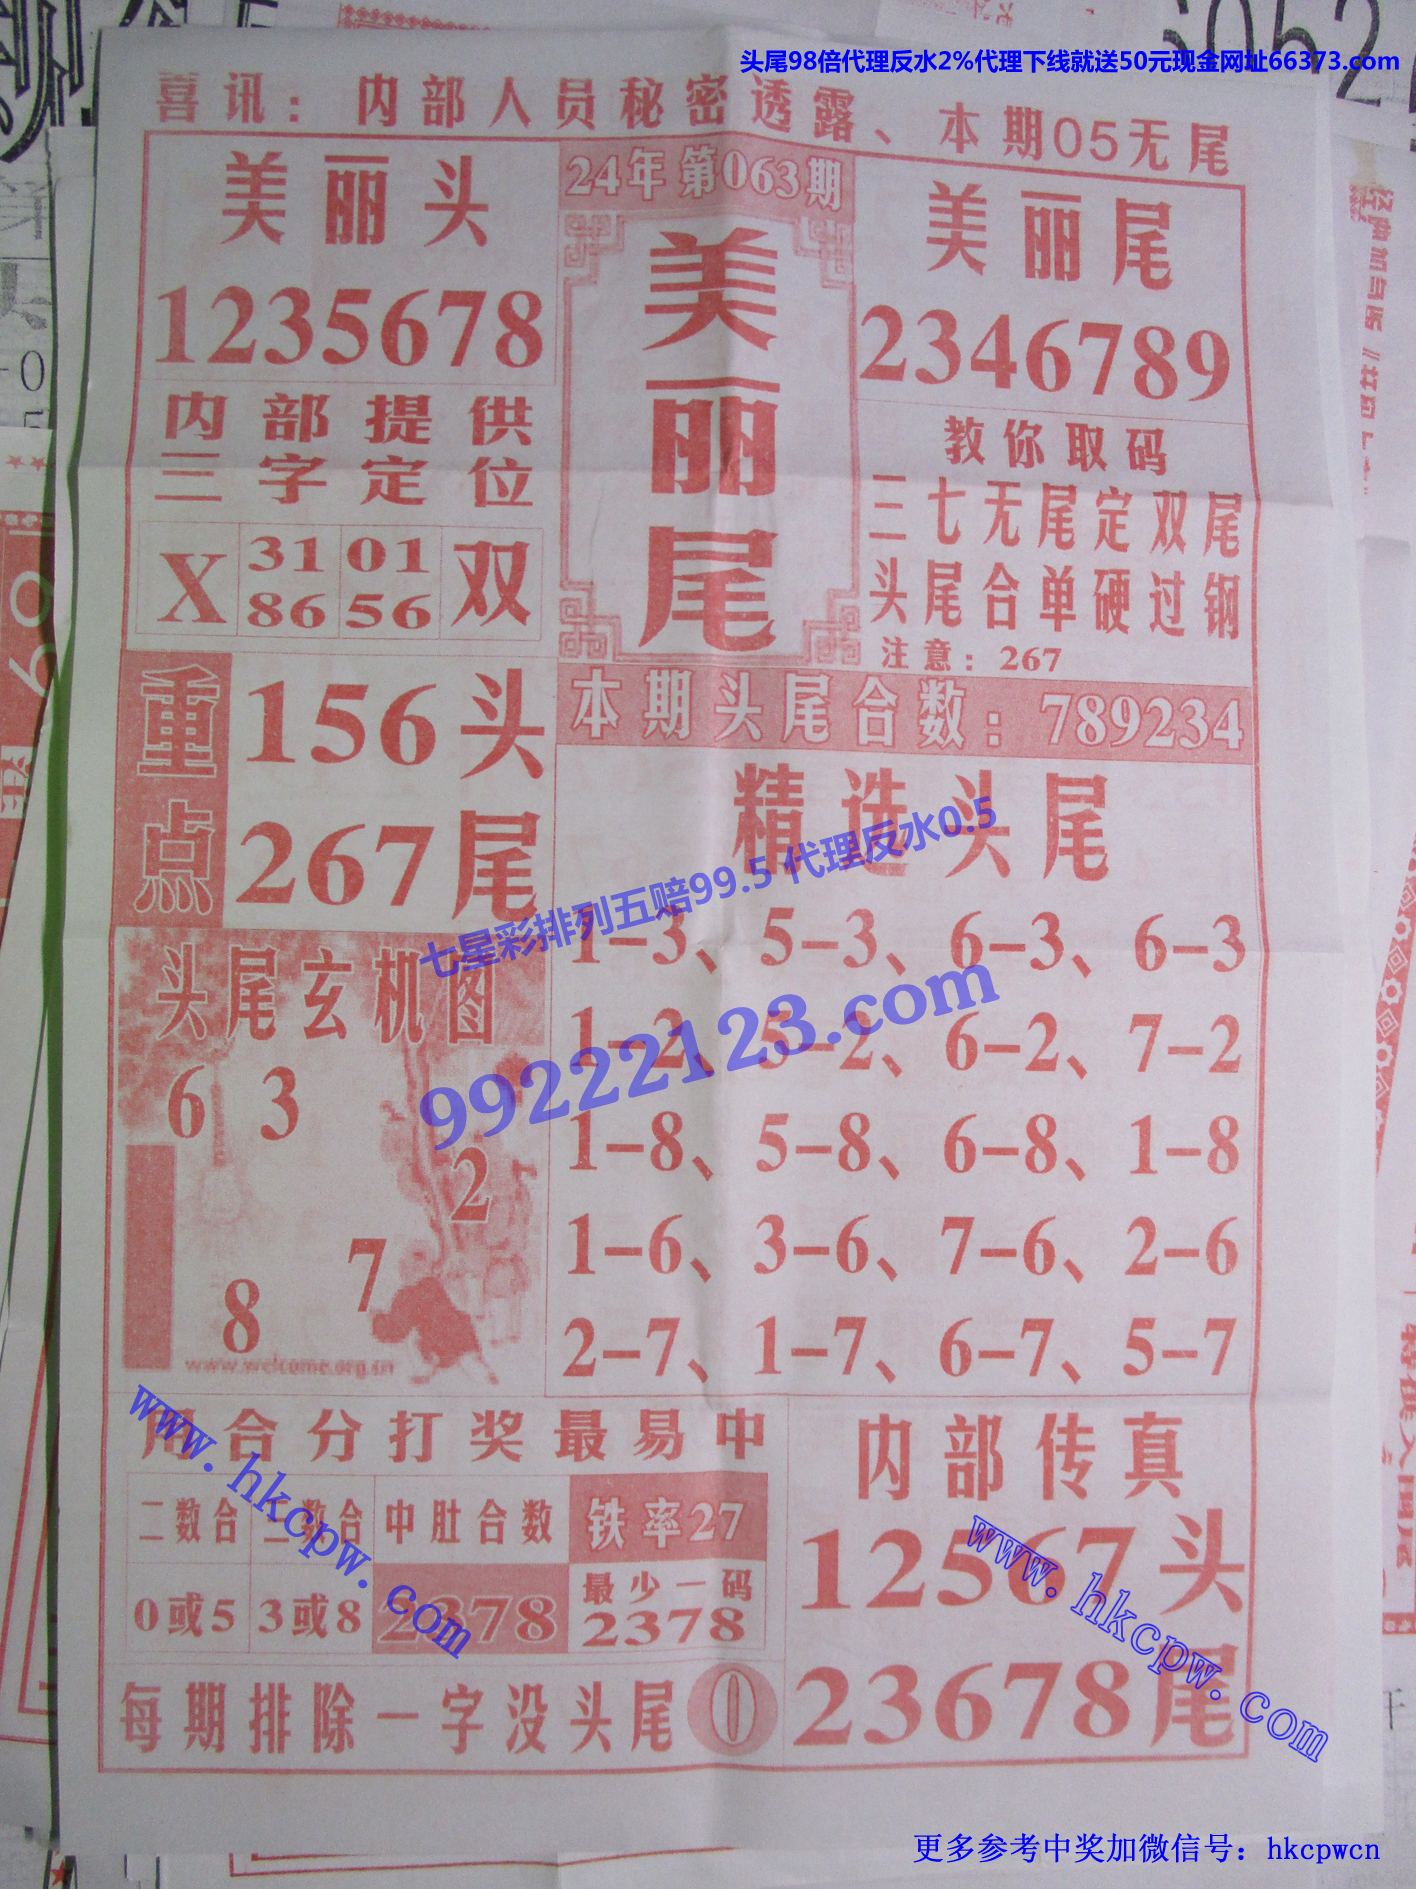 头尾98倍代理反水2%代理下线就送50元现金网址66373.com
喜讯：内部人员秘密透露、本期05无尾
美丽头
1235678
24年第063期
美丽尾
美丽尾
2346789
内部提供
三字定位
X 31 01 双
86 56
教你取码
三七无尾定双尾
头尾合单硬过钢
注意：267
重点
156头
267尾
本期头尾合数：789234
精选头尾
1-3、5-3、6-3、6-3
1-2、5-2、6-2、7-2
1-8、5-8、6-8、1-8
1-6、3-6、7-6、2-6
2-7、1-7、6-7、5-7
七星彩排列五赔99.5 代理反水0.5
99222123.com
头尾玄机图
6 3
2
7
8
www.welcome.org.cn
用合分打奖最易中
二数合 三数合 中肚合数 铁率27
0或5 3或8 2378 最少一码
2378
www.hkcpw.com
每期排除一字没头尾 0
内部传真
12567头
23678尾
www.hkcpw.com
更多参考中奖加微信号：hkcpwcn